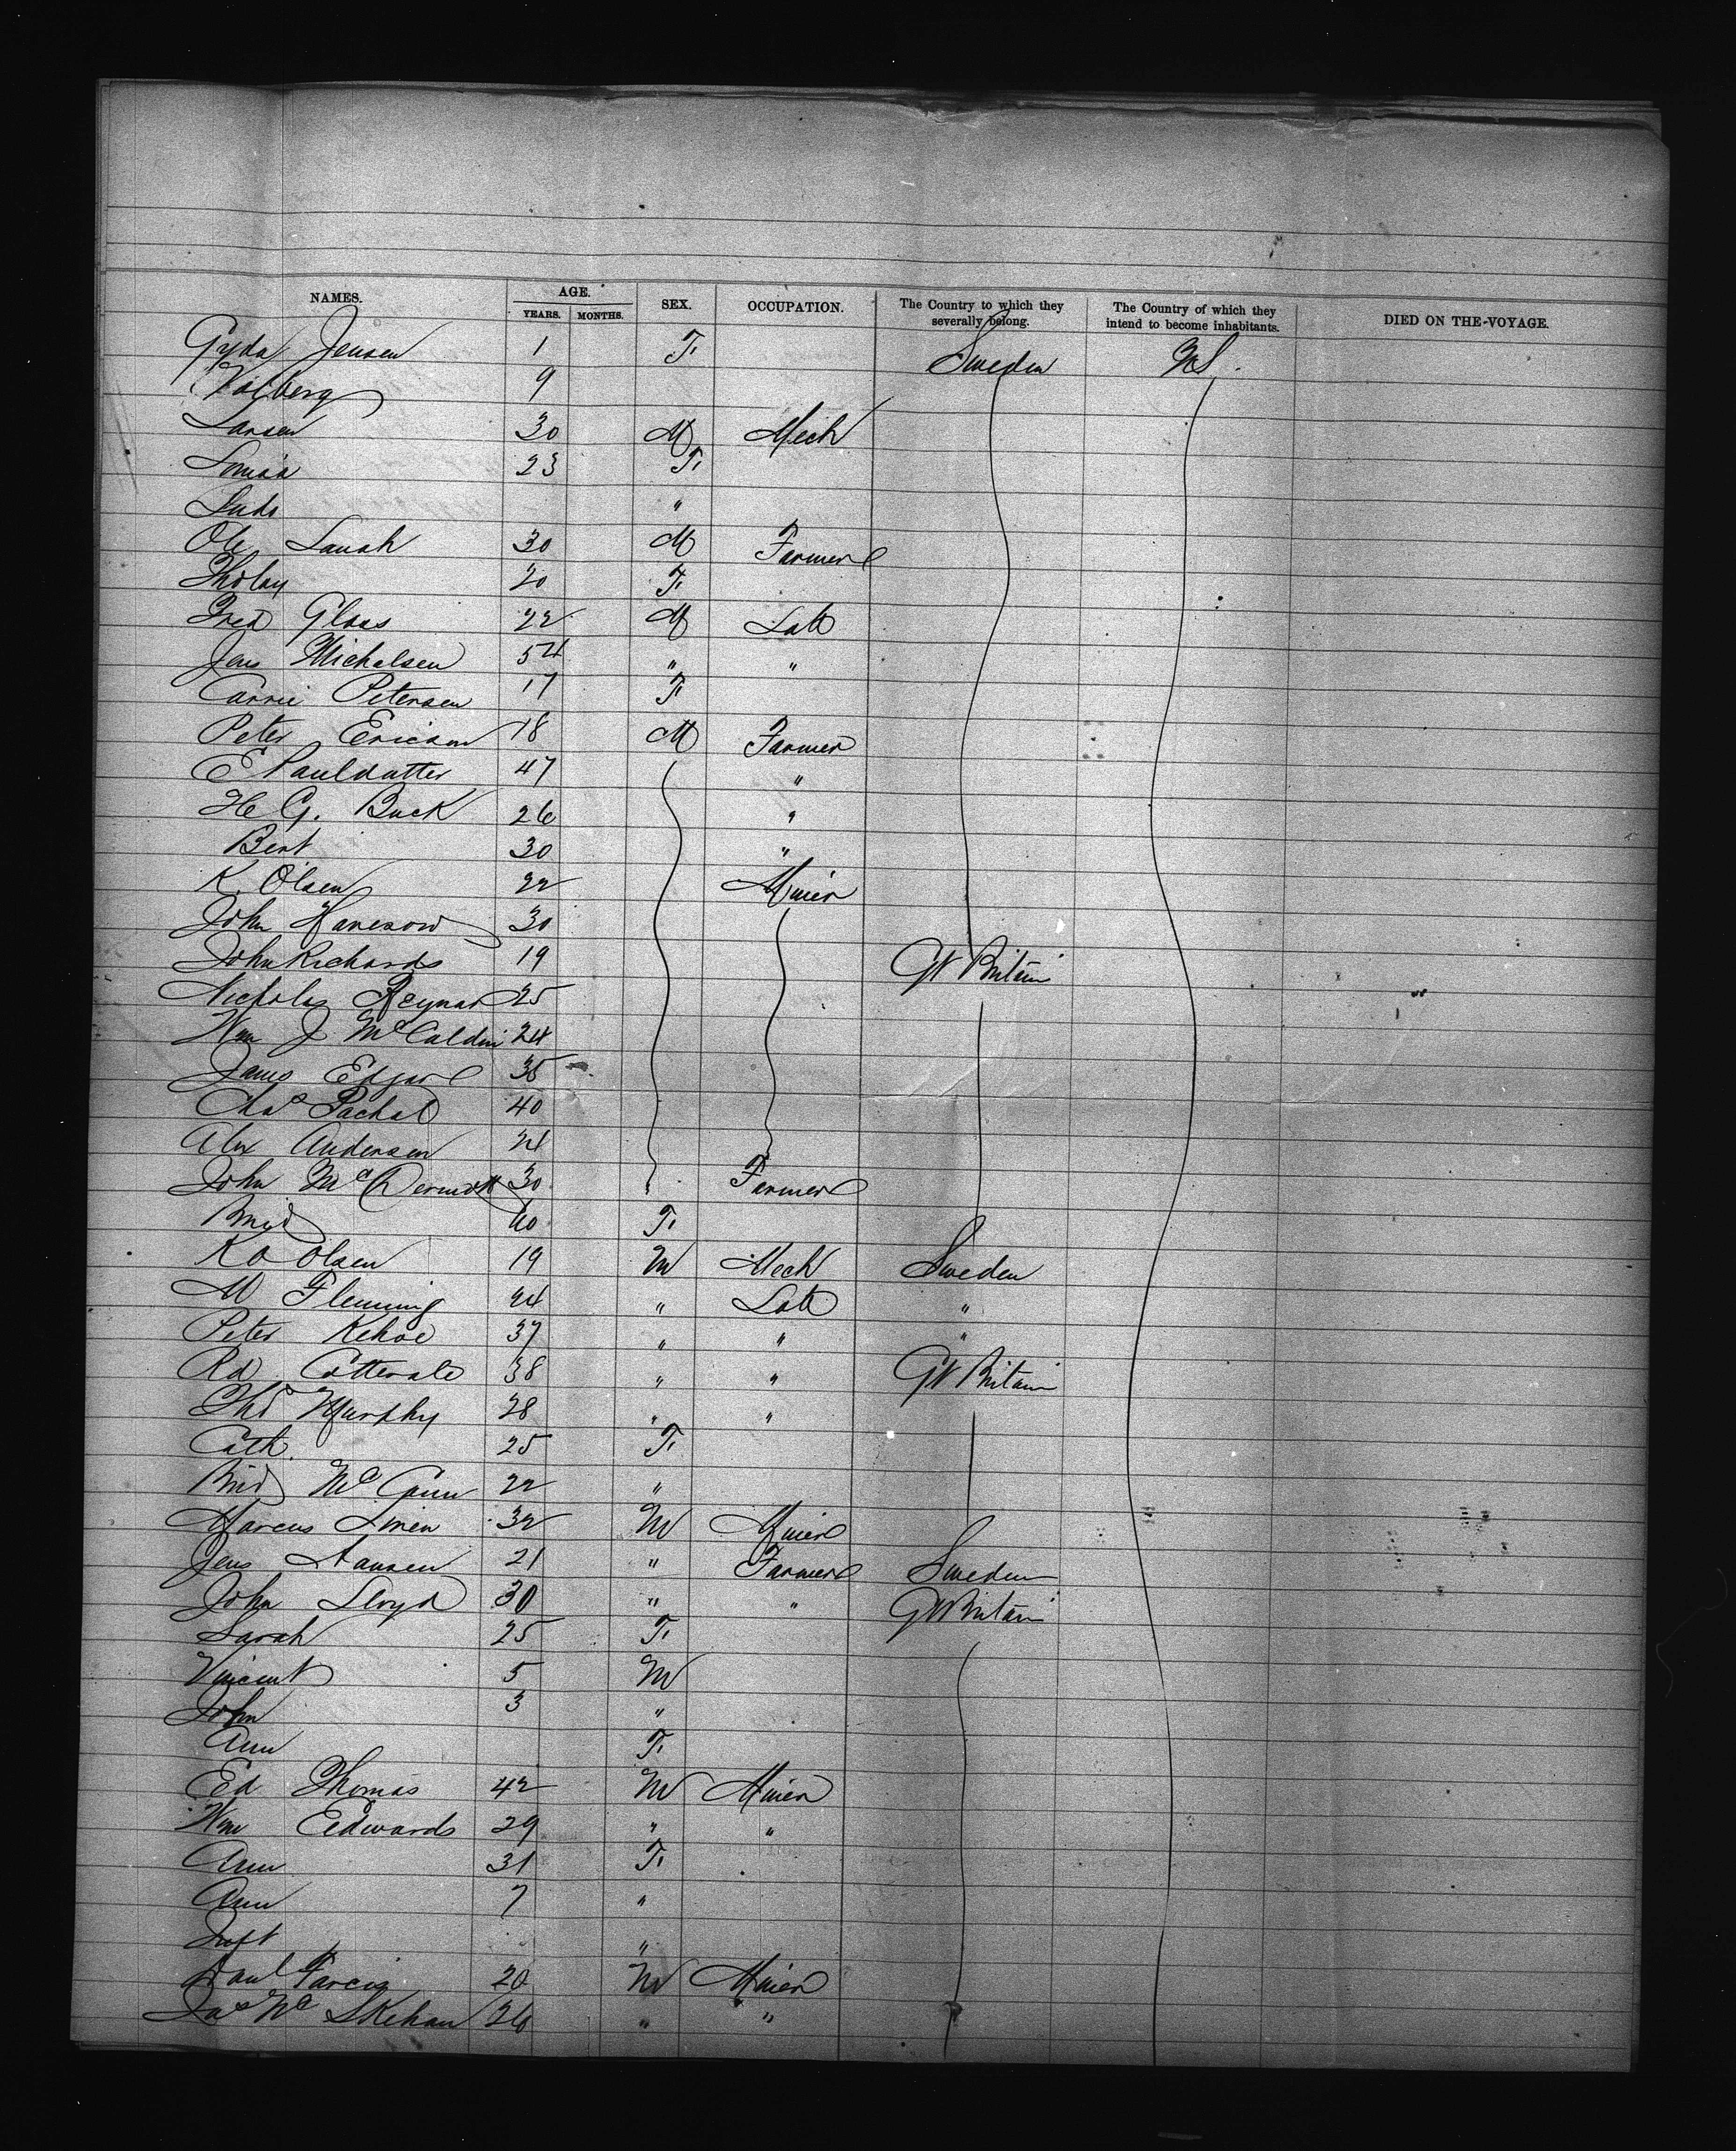 NAMES. AGE. SEX. OCCUPATION. The Country to which they severally belong. The Country of which they intend to become inhabitants. DIED ON THE-VOYAGE.
YEARS. MONTHS.
Gyda Jensen 1 F. Sweden U.S.
Valberg 9
Larsen 30 M Mech
23 F.
"
Ole 30 M Farmer
20 F.
Fred Glaas 22 M Lab
Jens Michalsen 54 " "
Carrie Petersen 17 F
Peter Ericson 18 M Farmer
E Pauldatter 47 "
He G. Buck 26 "
Bent 30 "
K. Olsen 22 Miner
John Haneson 30
John Richards 19 Gt Britain
Nicholas Reynard 25
Wm J McCaldin 24
James Edgar 35
Chas Pachal 40
Alex Andersen 21
John McDermott 30 Farmer
Brigd 60 F.
K O Olsen 19 M Mech Sweden
M Fleming 24 " Lab "
Peter Kehoe 37 " " "
Rd Cotterale 38 " " Gt Britain
Thos Murphy 28 " "
Cath 25 F.
Brid McCann 22 "
Marcus Linen 32 M Miner
Jens Hansen 21 " Farmer Sweden
John Lloyd 30 " " Gt Britain
Sarah 25 F.
Vincent 5 M
John 3 "
Ann F.
Ed Thomas 42 M Miner
Wm Edwards 29 " "
Ann 31 F.
Ann 7 "
Inft "
20 M Miner
Jas Mc Skehan 26 " "